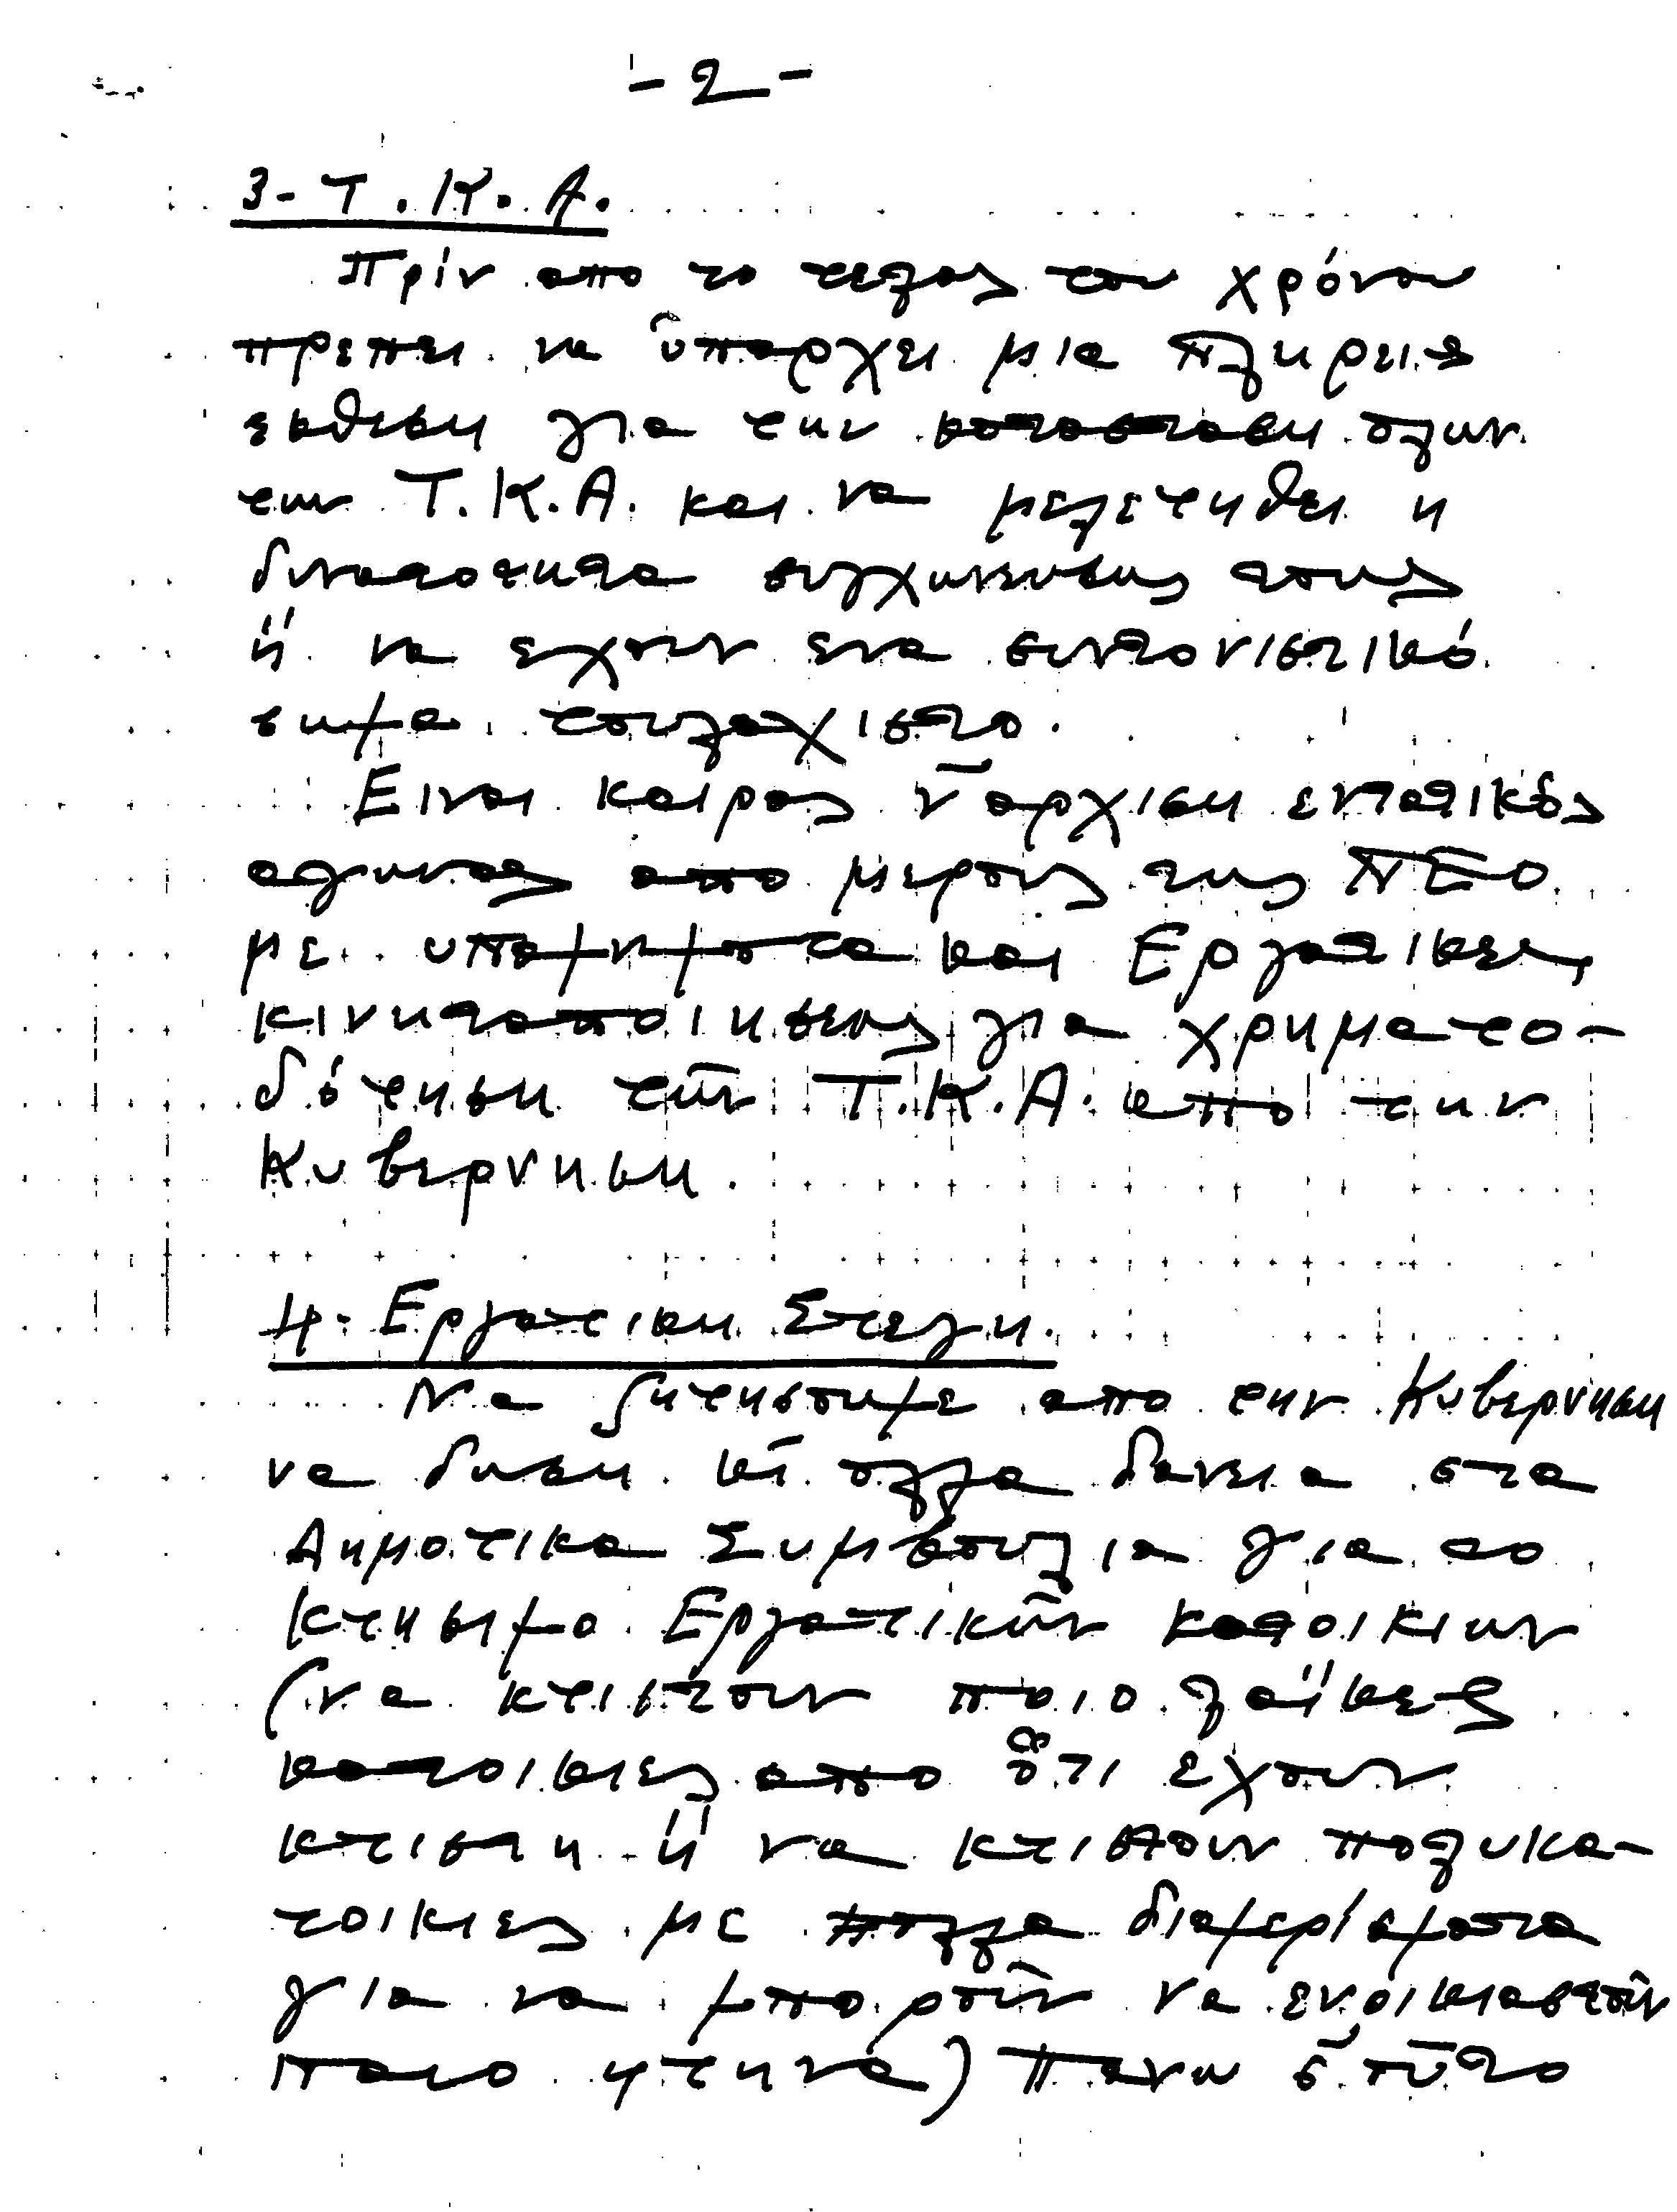 - 2 -
3- Τ.Κ.Α.
Πρίν απο το τελος του χρόνου
πρεπει να ὑπαρχει μια πληρης
εκθεση για την κατασταση ολων
των Τ.Κ.Α. και να μελετηθει η
δυνατοτητα συγχωνευσης τους
ἤ να εχουν ενα συντονιστικό
σωμα τουλαχιστο.
Ειναι καιρος ν᾽ αρχιση εντατικός
αγωνας απο μερους της ΠΕΟ
με υπομνηματα και Εργατικες
κινητοποιησεις για χρηματο-
δότηση τῶν Τ.Κ.Α. απο την
Κυβερνηση.
4- Εργατικη Στεγη.
Να ζητησουμε απο την Κυβερνηση
να δωση κι᾽ αλλα δανεια στα
Δημοτικα Συμβουλια για το
κτησιμο Εργατικῶν κατοικιων
(να κτιστουν ποιο λαϊκες
κατοικιες απο ὅτι εχουν
κτιστη ἤ να κτισθουν πολυκα-
τοικιες με πολλα διαμερίσματα
για να μπορούν να ενοικιαστοῦν
ποιο φτηνα) Πανω σ᾽ τοῦτο